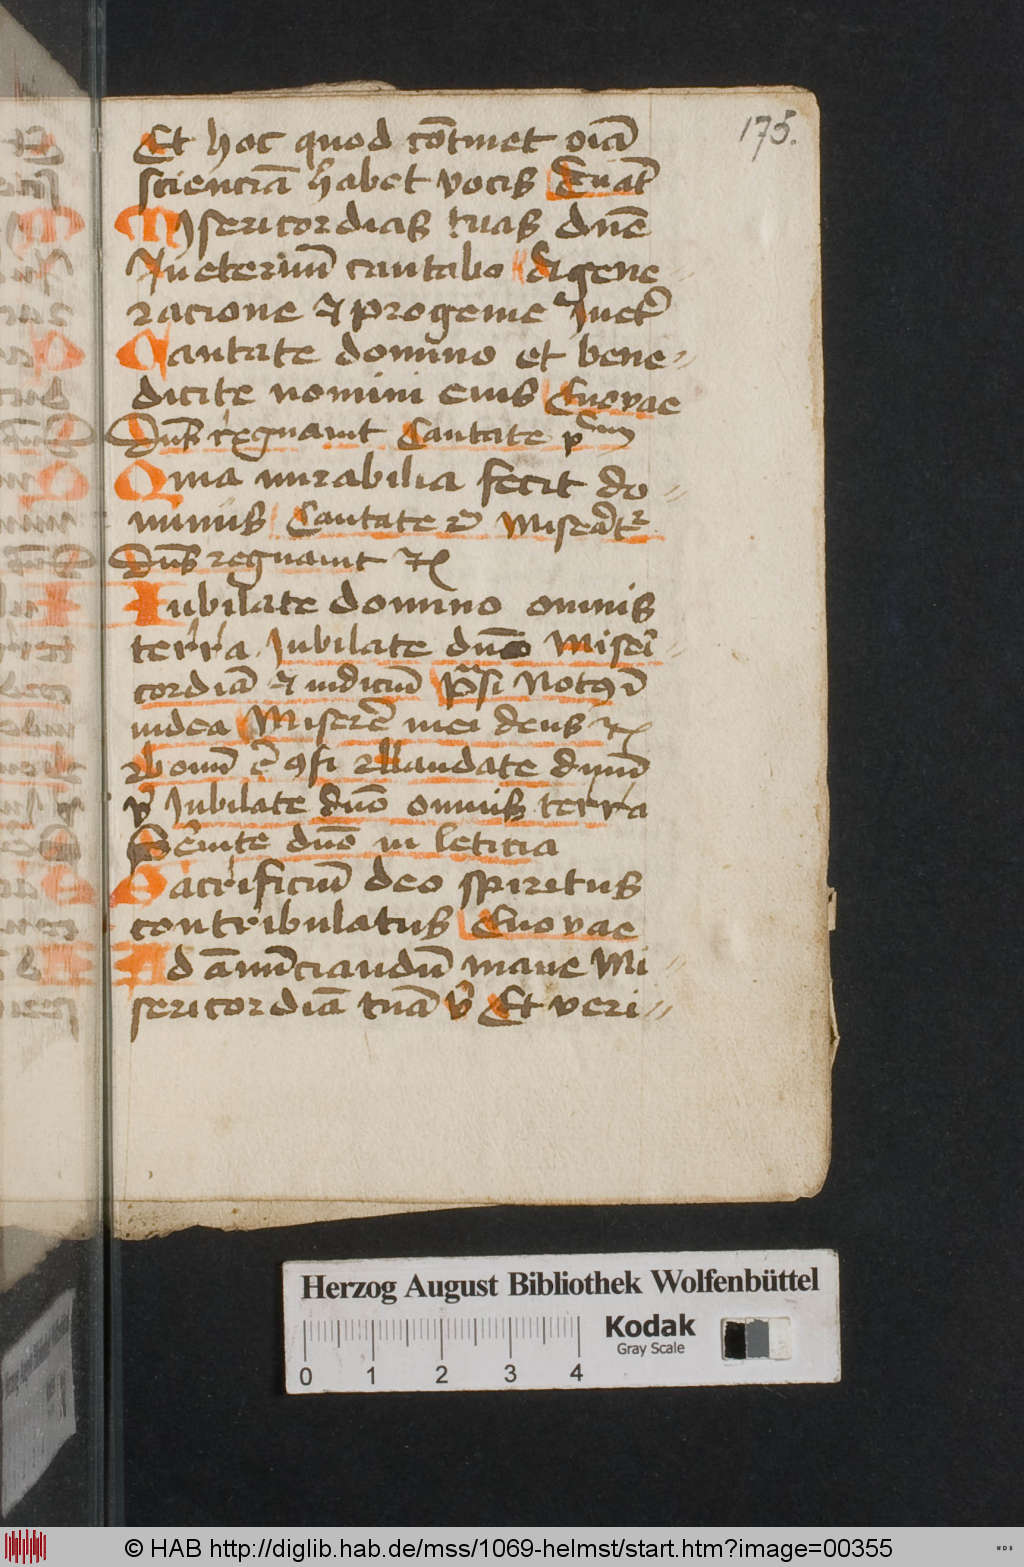 175.
Et hoc quod cōtinet oīa
scienciā habet vocis Euāt
Misericordias tuas dn̄e
Ineternū cantabo A gene-
racione et progenie Inet̄
Cantate domino et bene-
dicite nomini eius Euovae
Dn̄s regnauit Cantate p
Quia mirabilia fecit do-
minus Cantate
Dn̄s regnauit
Iubilate domino omnis
terra Iubilate dn̄o Miseri-
cordiā et iudiciū Notus ī
iudea Miserere mei deus
Bonū ē Laudate dn̄m
Iubilate dn̄o omnis terra
Seruite dn̄o in leticia
Sacrificiū deo spiritus
contribulatus Euovae
Ad an̄unciandū mane Mi-
sericordiā tuā Et veri-
Herzog August Bibliothek Wolfenbüttel
Kodak
Gray Scale
0 1 2 3 4
© HAB http://diglib.hab.de/mss/1069-helmst/start.htm?image=00355